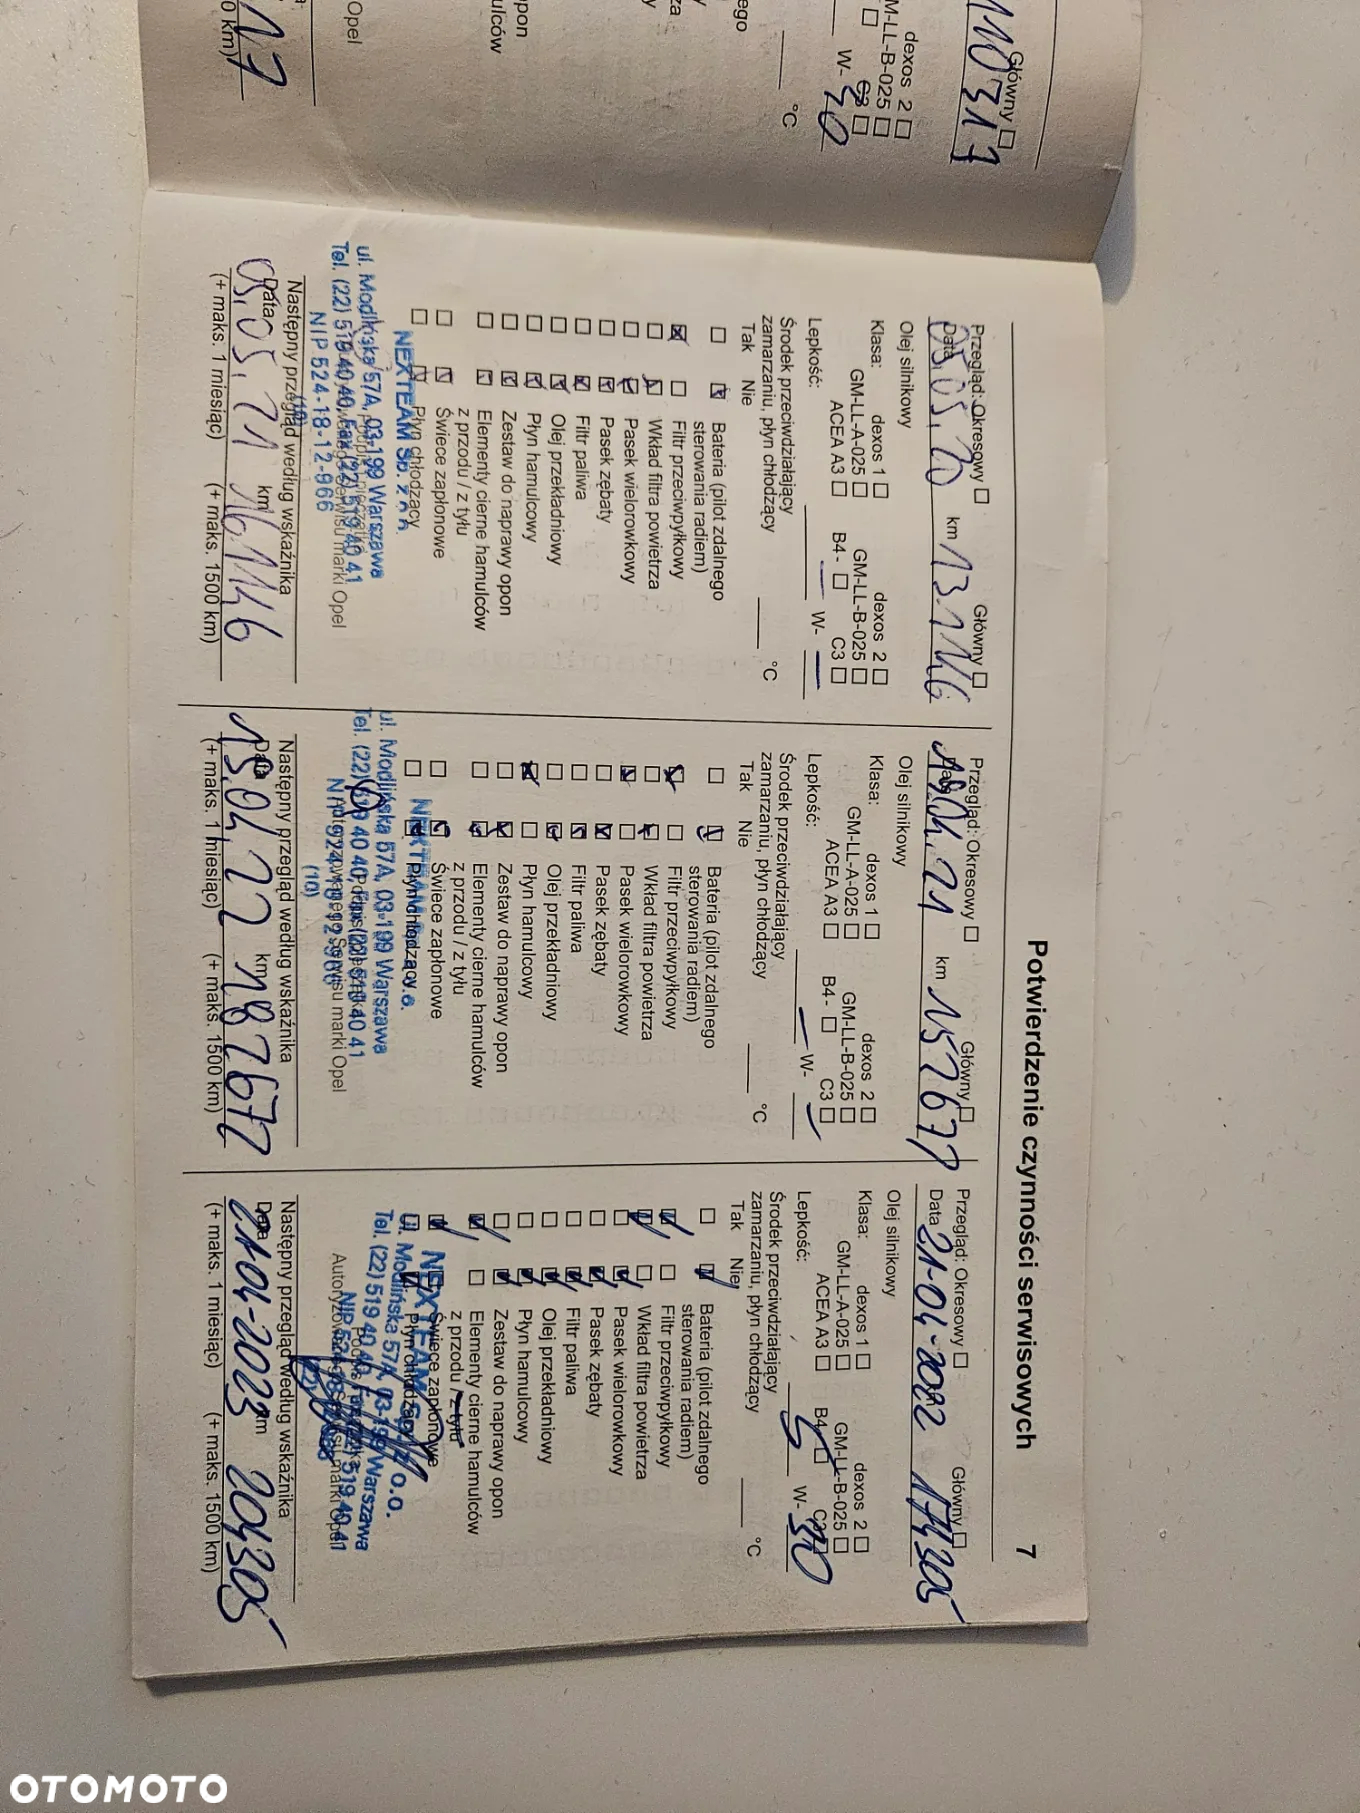 Główny
110317
dexos 2
GM-LL-B-025
C3
W- 40
°C
Opel
Potwierdzenie czynności serwisowych 7
Przegląd: Okresowy Główny
Data 05.05.20 km 131146
Olej silnikowy
Klasa: dexos 1 dexos 2
GM-LL-A-025 GM-LL-B-025
ACEA A3 B4- C3
Lepkość: W-
Środek przeciwdziałający
zamarzaniu, płyn chłodzący °C
Tak Nie
Bateria (pilot zdalnego
sterowania radiem)
Filtr przeciwpyłkowy
Wkład filtra powietrza
Pasek wielorowkowy
Pasek zębaty
Filtr paliwa
Olej przekładniowy
Płyn hamulcowy
Zestaw do naprawy opon
Elementy cierne hamulców
z przodu / z tyłu
Świece zapłonowe
Płyn chłodzący
NEXTEAM Sp. z o.o.
ul. Modlińska 57A, 03-199 Warszawa
Tel. (22) 519 40 40, Fax (22) 519 40 41
NIP 524-18-12-966
(10)
Następny przegląd według wskaźnika
Data 05.05.21 km 161146
(+ maks. 1 miesiąc) (+ maks. 1500 km)
Przegląd: Okresowy Główny
Data 19.04.21 km 157677
Olej silnikowy
Klasa: dexos 1 dexos 2
GM-LL-A-025 GM-LL-B-025
ACEA A3 B4- C3
Lepkość: W-
Środek przeciwdziałający
zamarzaniu, płyn chłodzący °C
Tak Nie
Bateria (pilot zdalnego
sterowania radiem)
Filtr przeciwpyłkowy
Wkład filtra powietrza
Pasek wielorowkowy
Pasek zębaty
Filtr paliwa
Olej przekładniowy
Płyn hamulcowy
Zestaw do naprawy opon
Elementy cierne hamulców
z przodu / z tyłu
Świece zapłonowe
Płyn chłodzący
NEXTEAM
ul. Modlińska 57A, 03-199 Warszawa
Tel. (22) 519 40 40, Fax (22) 519 40 41
Autoryzowanego Serwisu marki Opel
(10)
Następny przegląd według wskaźnika
Data 19.04.22 km 187677
(+ maks. 1 miesiąc) (+ maks. 1500 km)
Przegląd: Okresowy Główny
Data 21-04-2022 174305
Olej silnikowy
Klasa: dexos 1 dexos 2
GM-LL-A-025 GM-LL-B-025
ACEA A3 B4- C3
Lepkość: 5 W- 30
Środek przeciwdziałający
zamarzaniu, płyn chłodzący °C
Tak Nie
Bateria (pilot zdalnego
sterowania radiem)
Filtr przeciwpyłkowy
Wkład filtra powietrza
Pasek wielorowkowy
Pasek zębaty
Filtr paliwa
Olej przekładniowy
Płyn hamulcowy
Zestaw do naprawy opon
Elementy cierne hamulców
z przodu / z tyłu
Świece zapłonowe
Płyn chłodzący
NEXTEAM Sp. z o.o.
ul. Modlińska 57A, 03-199 Warszawa
Tel. (22) 519 40 40, Fax (22) 519 40 41
Następny przegląd według wskaźnika
Data 21-04-2023 km 204305
(+ maks. 1 miesiąc) (+ maks. 1500 km)
OTOMOTO